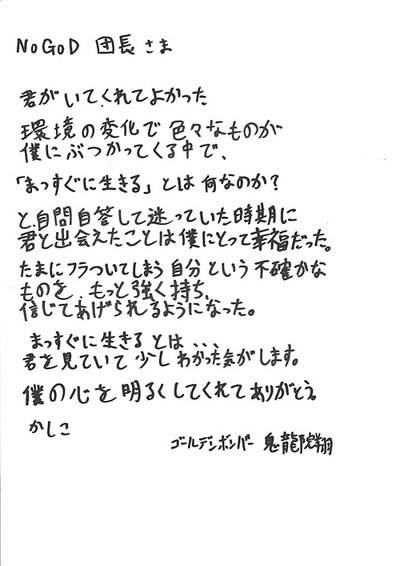 NoGoD 団長さま
君がいてくれてよかった
環境の変化で色々なものが
僕にぶつかってくる中で、
「まっすぐに生きる」とは何なのか?
と自問自答して迷っていた時期に
君と出会えたことは僕にとって幸福だった。
たまにフラついてしまう自分という不確かな
ものを、もっと強く持ち、
信じてあげられるようになった。
まっすぐに生きるとは、、、
君を見ていて少しわかった気がします。
僕の心を明るくしてくれてありがとう。
かしこ
ゴールデンボンバー 鬼龍院翔